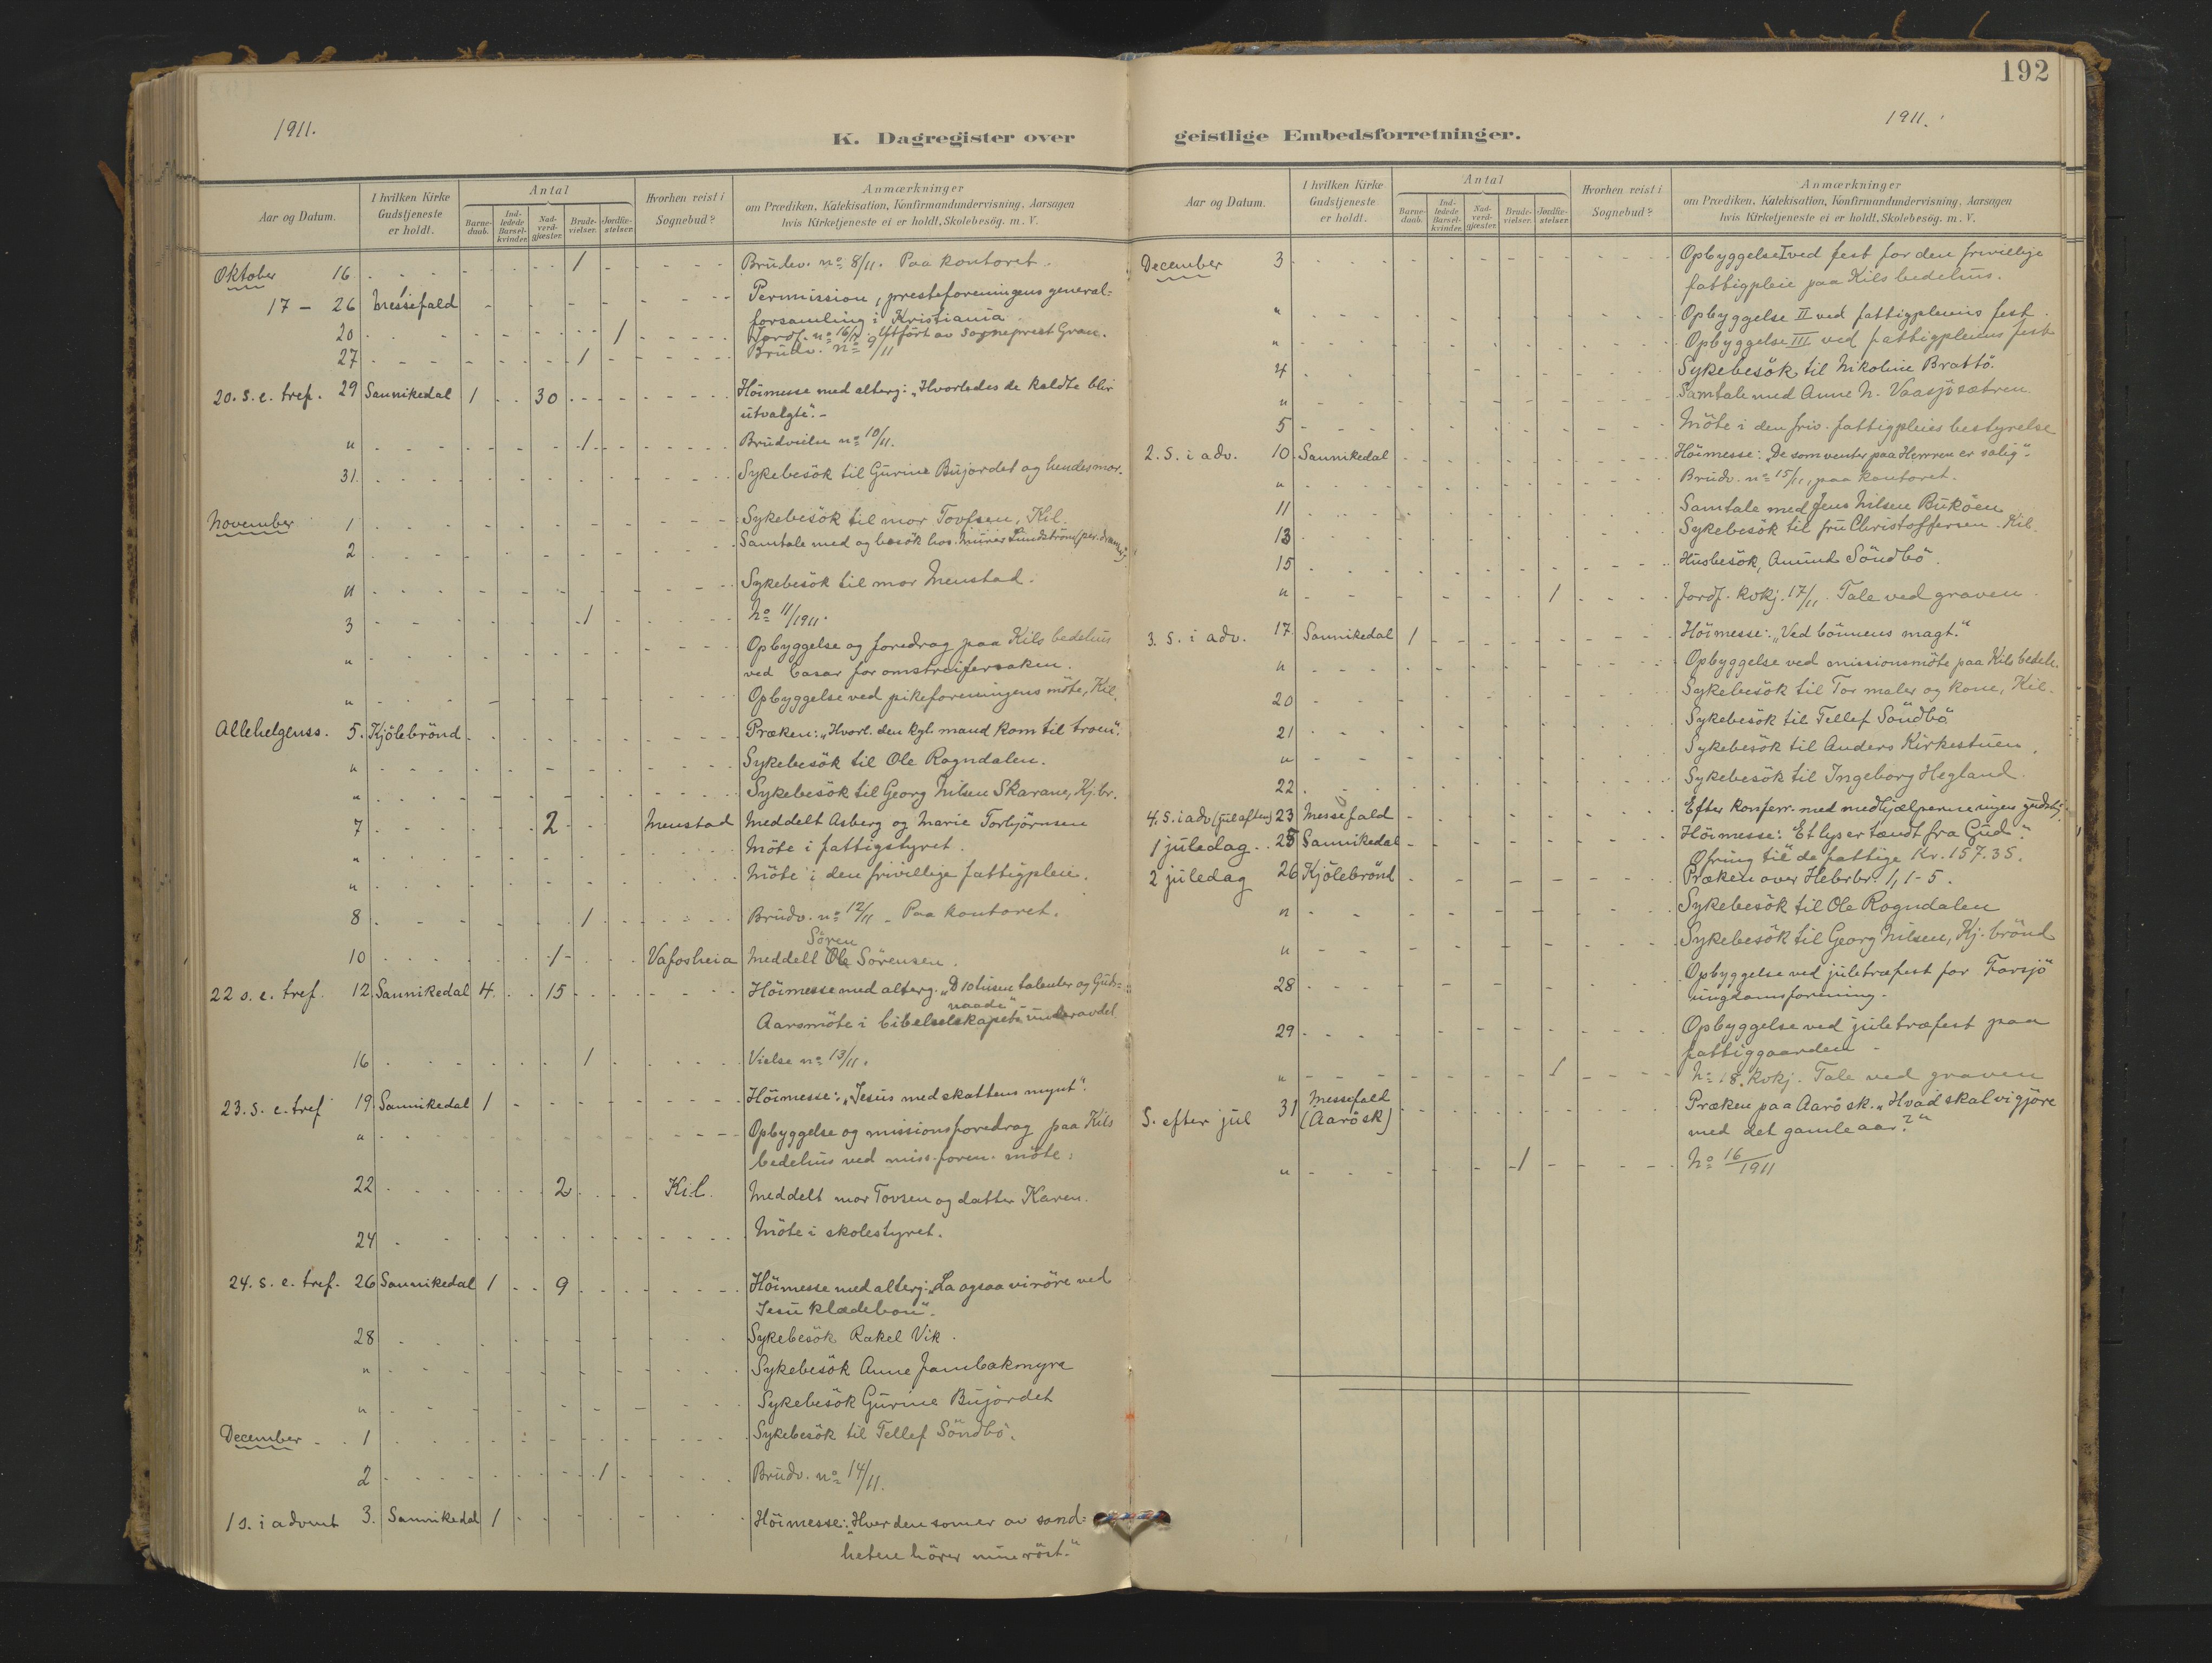 192
1911.
1911.
K. Dagregister over geistlige Embedsforretninger.
Aar og Datum.
I hvilken Kirke Gudstjeneste er holdt.
Antal
Barne-daab.
Ind-ledede Barsel-kvinder.
Nad-verd-gjæster.
Brude-vielser.
Jordfæ-stelser.
Hvorhen reist i Sognebud?
Anmærkninger
om Prædiken, Katekisation, Konfirmandundervisning, Aarsagen
hvis Kirketjeneste ei er holdt, Skolebesög. m. V.
Oktober 16 1 Brudev. no 8/11. Paa kontoret.
17 - 26 Messefald Permission, presteforeningens general-
forsamling i Kristiania
20 1 Jordf. no 16/11. Utført av sogneprest Gran.
27 1 Brudv. no 9/11
20. s. e. tref. 29 Sannikedal 1 30 Höimesse med alterg: "Hvorledes de kaldte blir
utvalgte". -
" 1 Brudvielse no 10/11.
31. Sykebesök til Gurine Bujordet og hendes mor.
November 1 Sykebesök til mor Tovsen, Kil.
2 Samtale med og besök hos murer Lundström
" Sykebesök til mor Menstad.
3 1 No 11/1911.
" Opbyggelse og foredrag paa Kils bedehus
ved basar for omstreifersaken.
" Opbyggelse ved pikeforeningens möte, Kil.
Allehelgenss. 5. Kjölebrönd Præken: "Hvorl. den kgl. mand kom til troen".
" Sykebesök til Ole Rogndalen.
" Sykebesök til Georg Nilsen Skarane, Kj.br.
7 2 Menstad Meddelt Asberg og Marie Torbjörnsen
" Möte i fattigstyret.
" Möte i den frivillige fattigpleie.
8 1 Brudv. no 12/11 - Paa kontoret.
Sören
10 1 Vafosheia Meddelt Ole Sörensen.
22 s. e. tref. 12 Sannikedal 4 15 Höimesse med alterg. "D 10 tusen talenter og Guds
naade"
Aarsmöte i bibelselskapets underavdel.
16 1 Vielse no 13/11.
23. s. e. tref 19 Sannikedal 1 Höimesse: "Jesus med skattens mynt".
" Opbyggelse og missionsforedrag paa Kils
bedehus ved miss. foren. möte.
22 2 Kil. Meddelt mor Tovsen og datter Karen.
24 Möte i skolestyret.
24. s. e. tref. 26 Sannikedal 1 9 Höimesse med alterg: "La ogsaa vi röre ved
Jesu klædebon".
28 Sykebesök Rakel Vik.
" Sykebesök Anne Jambakmyra
" Sykebesök Gurine Bujordet
December 1 Sykebesök til Tellef Söndbö.
2 1 Brudv. no 14/11.
1 s. i advent 3. Sannikedal 1 Höimesse: "Hver den som er av sand-
heten hörer min röst."
Aar og Datum.
I hvilken Kirke Gudstjeneste er holdt.
Antal
Barne-daab.
Ind-ledede Barsel-kvinder.
Nad-verd-gjæster.
Brude-vielser.
Jordfæ-stelser.
Hvorhen reist i Sognebud?
Anmærkninger
om Prædiken, Katekisation, Konfirmandundervisning, Aarsagen
hvis Kirketjeneste ei er holdt, Skolebesög. m. V.
December 3 Opbyggelse I ved fest for den frivillige
fattigpleie paa Kils bedehus.
" Opbyggelse II ved fattigpleiens fest.
" Opbyggelse III ved fattigpleiens fest
4 Sykebesök til Nikoline Brattö.
" Samtale med Anne N. Vaasjösætren
5 Möte i den friv. fattigpleies bestyrelse
2. S. i adv. 10 Sannikedal Höimesse: "De som venter paa Herren er salig".
" Brudv. no 15/11, paa kontoret.
11 Samtale med Jens Nilsen Buköen
13 Sykebesök til fru Christoffersen. Kil.
15 Husbesök, Amund Söndbö.
" 1 Jordf. kvkj. 17/11. Tale ved graven.
3. S. i adv. 17 Sannikedal 1 Höimesse: "Ved bönnens magt."
" Opbyggelse ved missionsmöte paa Kils bedeh.
20 Sykebesök til Tor maler og kone, Kil.
21 Sykebesök til Tellef Söndbö
" Sykebesök til Anders Kirkestuen.
22 Sykebesök til Ingeborg Hegland
4. S. i adv (juleaften) 23 Messefald Efter konferr. med medhjælperne ingen gudstj.
1 juledag 25 Sannikedal Höimesse: "Et lys er tændt fra Gud".
Ofring til de fattige Kr. 157.35.
2 juledag 26 Kjölebrönd Præken over Hebrbr. 1, 1-5.
" Sykebesök til Ole Rogndalen
" Sykebesök til Georg Nilsen, Kj. brönd
28 Opbyggelse ved juletræfest for Farsjö
ungdomsforening.
29 Opbyggelse ved juletræfest paa
fattiggaarden -
" 1 No 18. kvkj. Tale ved graven
S. efter jul 31 Messefald
(Aarö sk) Præken paa Aarö sk. "Hvad skal vi gjöre
med det gamle aar?"
" 1 No 16/1911